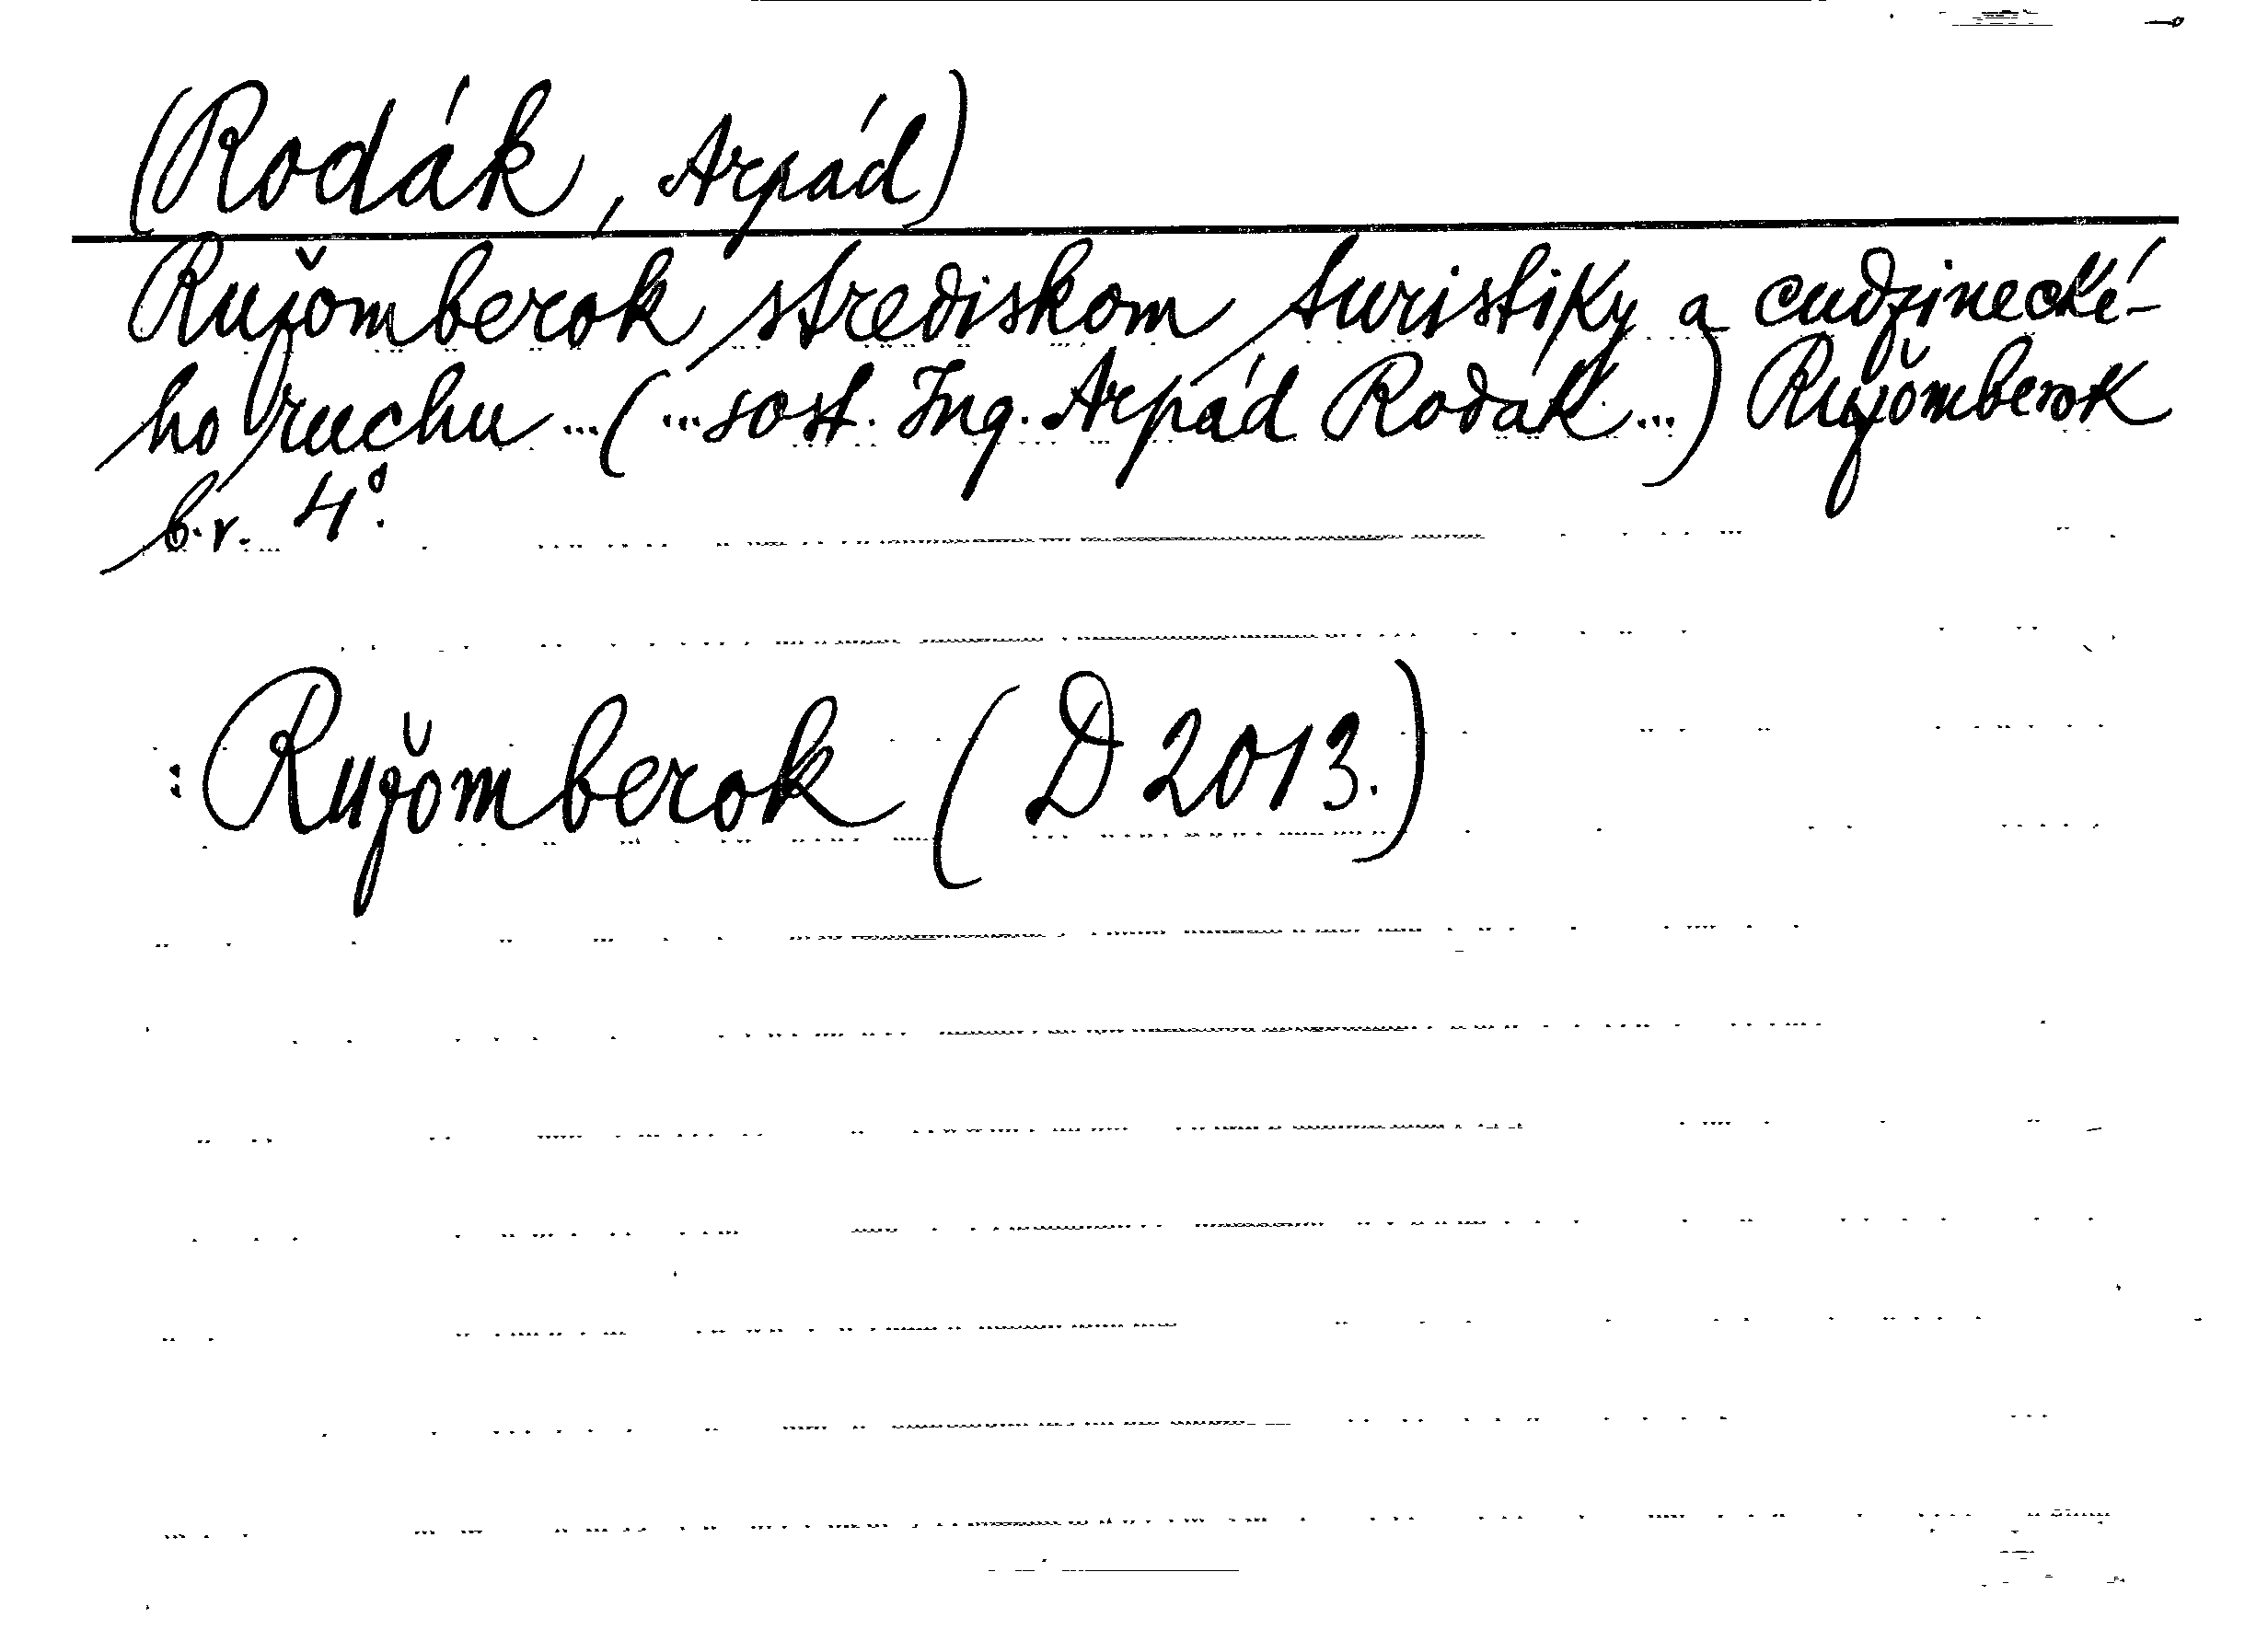 (Rodák, Arpád)
Ružomberok strediskom turistiky a cudzinecké-
ho ruchu ... (...sost. Ing. Arpád Rodák...) Ružomberok
b.r. 4°.
: Ružomberok (D 2013.)